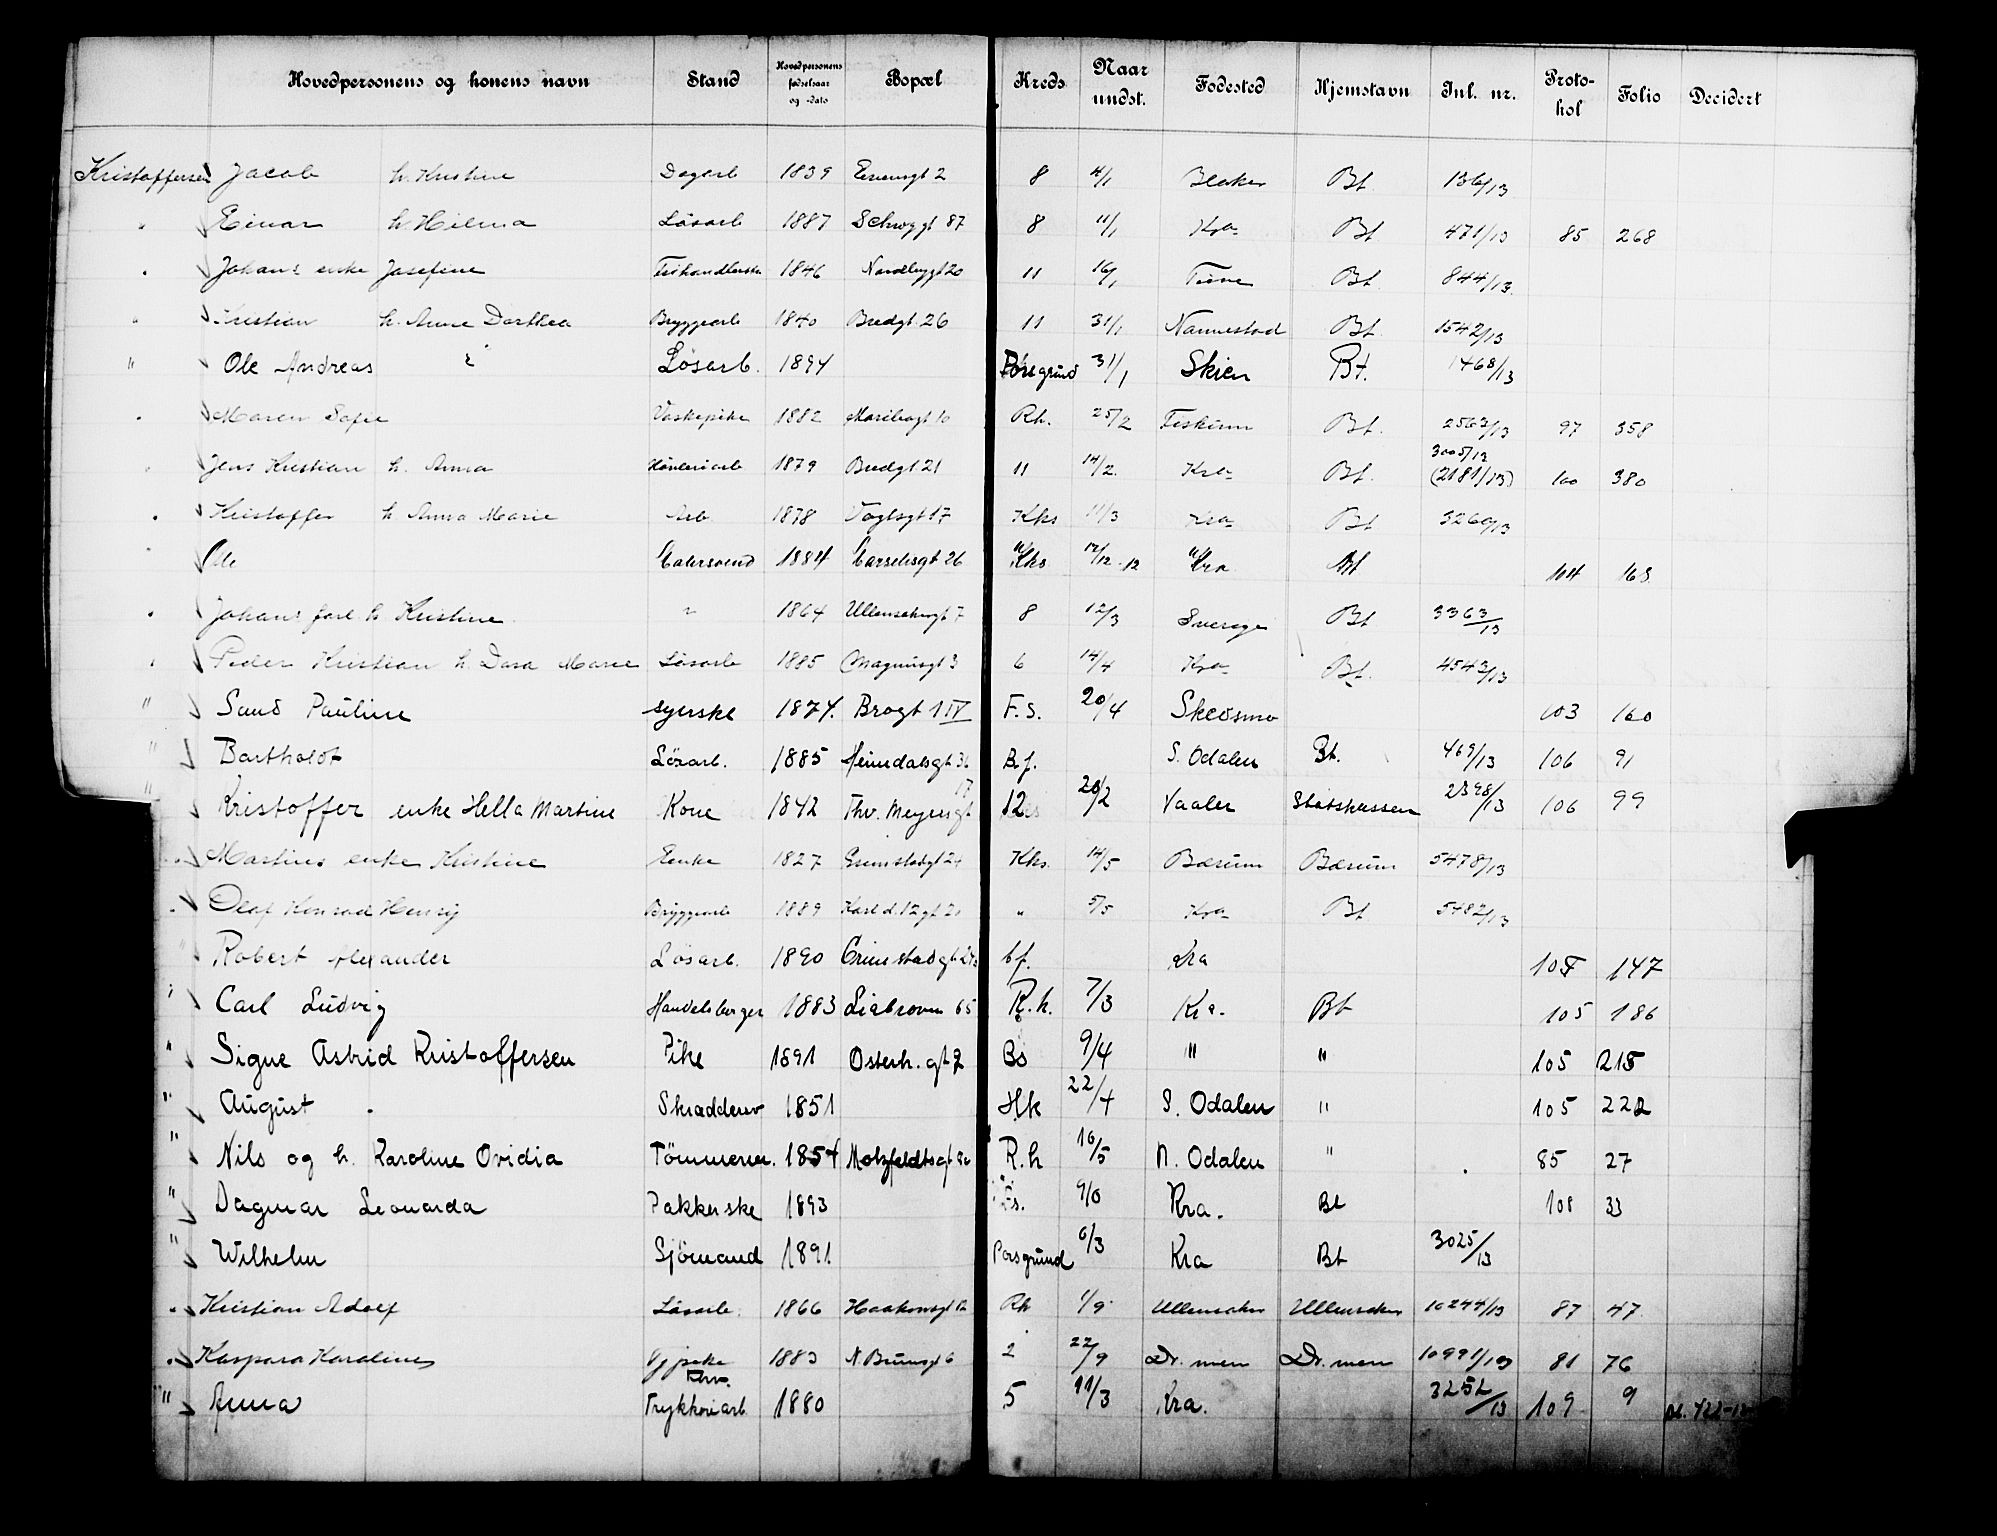 Hovedpersonens og konens navn Stand Hovedpersonens fødselsaar og -dato Bopæl Kreds Naar undst. Fødested Hjemstavn Inl. nr. Protokol Folio Decidert
Kristoffersen Jacob h. Kristine Dagarb 1839 2 8 4/1 Blaker Bt. 136/13
" Einar h. Hilma Løsarb 1887 Schwggt 87 8 11/1 Kra Bt 471/13 85 268
" Johans enke Josefine 1846 Nordbygt 20 11 16/1 Bt. 844/13
" Kristian h. Anne Dorthea Bryggearb 1840 Bredgt. 26 11 31/1 Nannestad Bt. 1542/13
" Ole Andreas Løsarb. 1894 Porsgrund 31/1 Skien Bt. 1468/13
" Maren Sofie Vaskepike 1882 Maribogt 10 Rh. 25/2 Bt. 2563/13 97 358
" Jens Kristian h. Anna 1879 Bredgt 21 11 14/2. Kra Bt. 3005/13 (2181/13) 100 380
" Kristoffer h. Anna Marie Arb 1878 Vogtsgt 17 Kks 11/3 Kra Bt 3260/13
" Ole Malersvend 1884 Marselisgt 26 Kks 12/12 12 Kra Bt 104 163
" Johans farl h Kristine " 1864 Ullensakergt 7 8 12/3 Sverige Bt 3363/13
" Peder Kristian h. Dora Marie Løsarb 1885 Magnusgt 3 6 14/4 Kra Bt. 4543/13
" Sand Pauline syerske 1874. Brogt 1 IV F.S. 20/4 Skedsmo 103 160
" Barthold Løsarb. 1885 Heimdalsgt 36 B.f. S. Odalen Bt. 469/13 106 91
" Kristoffer enke Hella Martine Kone 1842 Thv. Meyersgt 17 12 20/2 Vaaler Statskassen 2398/13 106 99
" Martins enke Kristine Enke 1827 Grimstadgt 24 Kks. 14/5 Bærum Bærum 5478/13
" Olaf Konrad Henrij Bryggearb 1889 Karl d. 12 gt 20 " 5/5 Kra Bt 5482/13
" Robert Alexander Løsarb. 1890 Grimstadgt bf. Kra 105 147
" Carl Ludvig Handelsborger 1883 Liabroveien 65 R.h. 7/3 Kra. Bt 105 186
" Signe Astrid Kristoffersen Pike 1891 Osterh. gt 7 Bs 9/4 " " 105 215
" August Skrædder 1851 Hk 22/4 S. Odalen " 105 222
" Nils og h. Karoline Ovidia Tömmerm. 1854 Motzfeldtsgt R.h 16/5 N. Odalen " 85 27
" Dagmar Leonarda Pakkerske 1893 Kra. Bt 108 33
" Wilhelm Sjömand 1891 Porsgrund 6/3 Kra Bt 3025/13
" Kristian Adolf Løsarb. 1866 Haakonsgt 12 Rh 1/9 Ullensaker Ullensaker 10244/13 87 47
" Kaspara Karoline 1883 N. Brunsgt 6 2 22/9 Dr. men Dr. men 10991/13 81 76
" Anna Trykkeriarb 1880 5 11/3 Kra. 3252/13 109 9